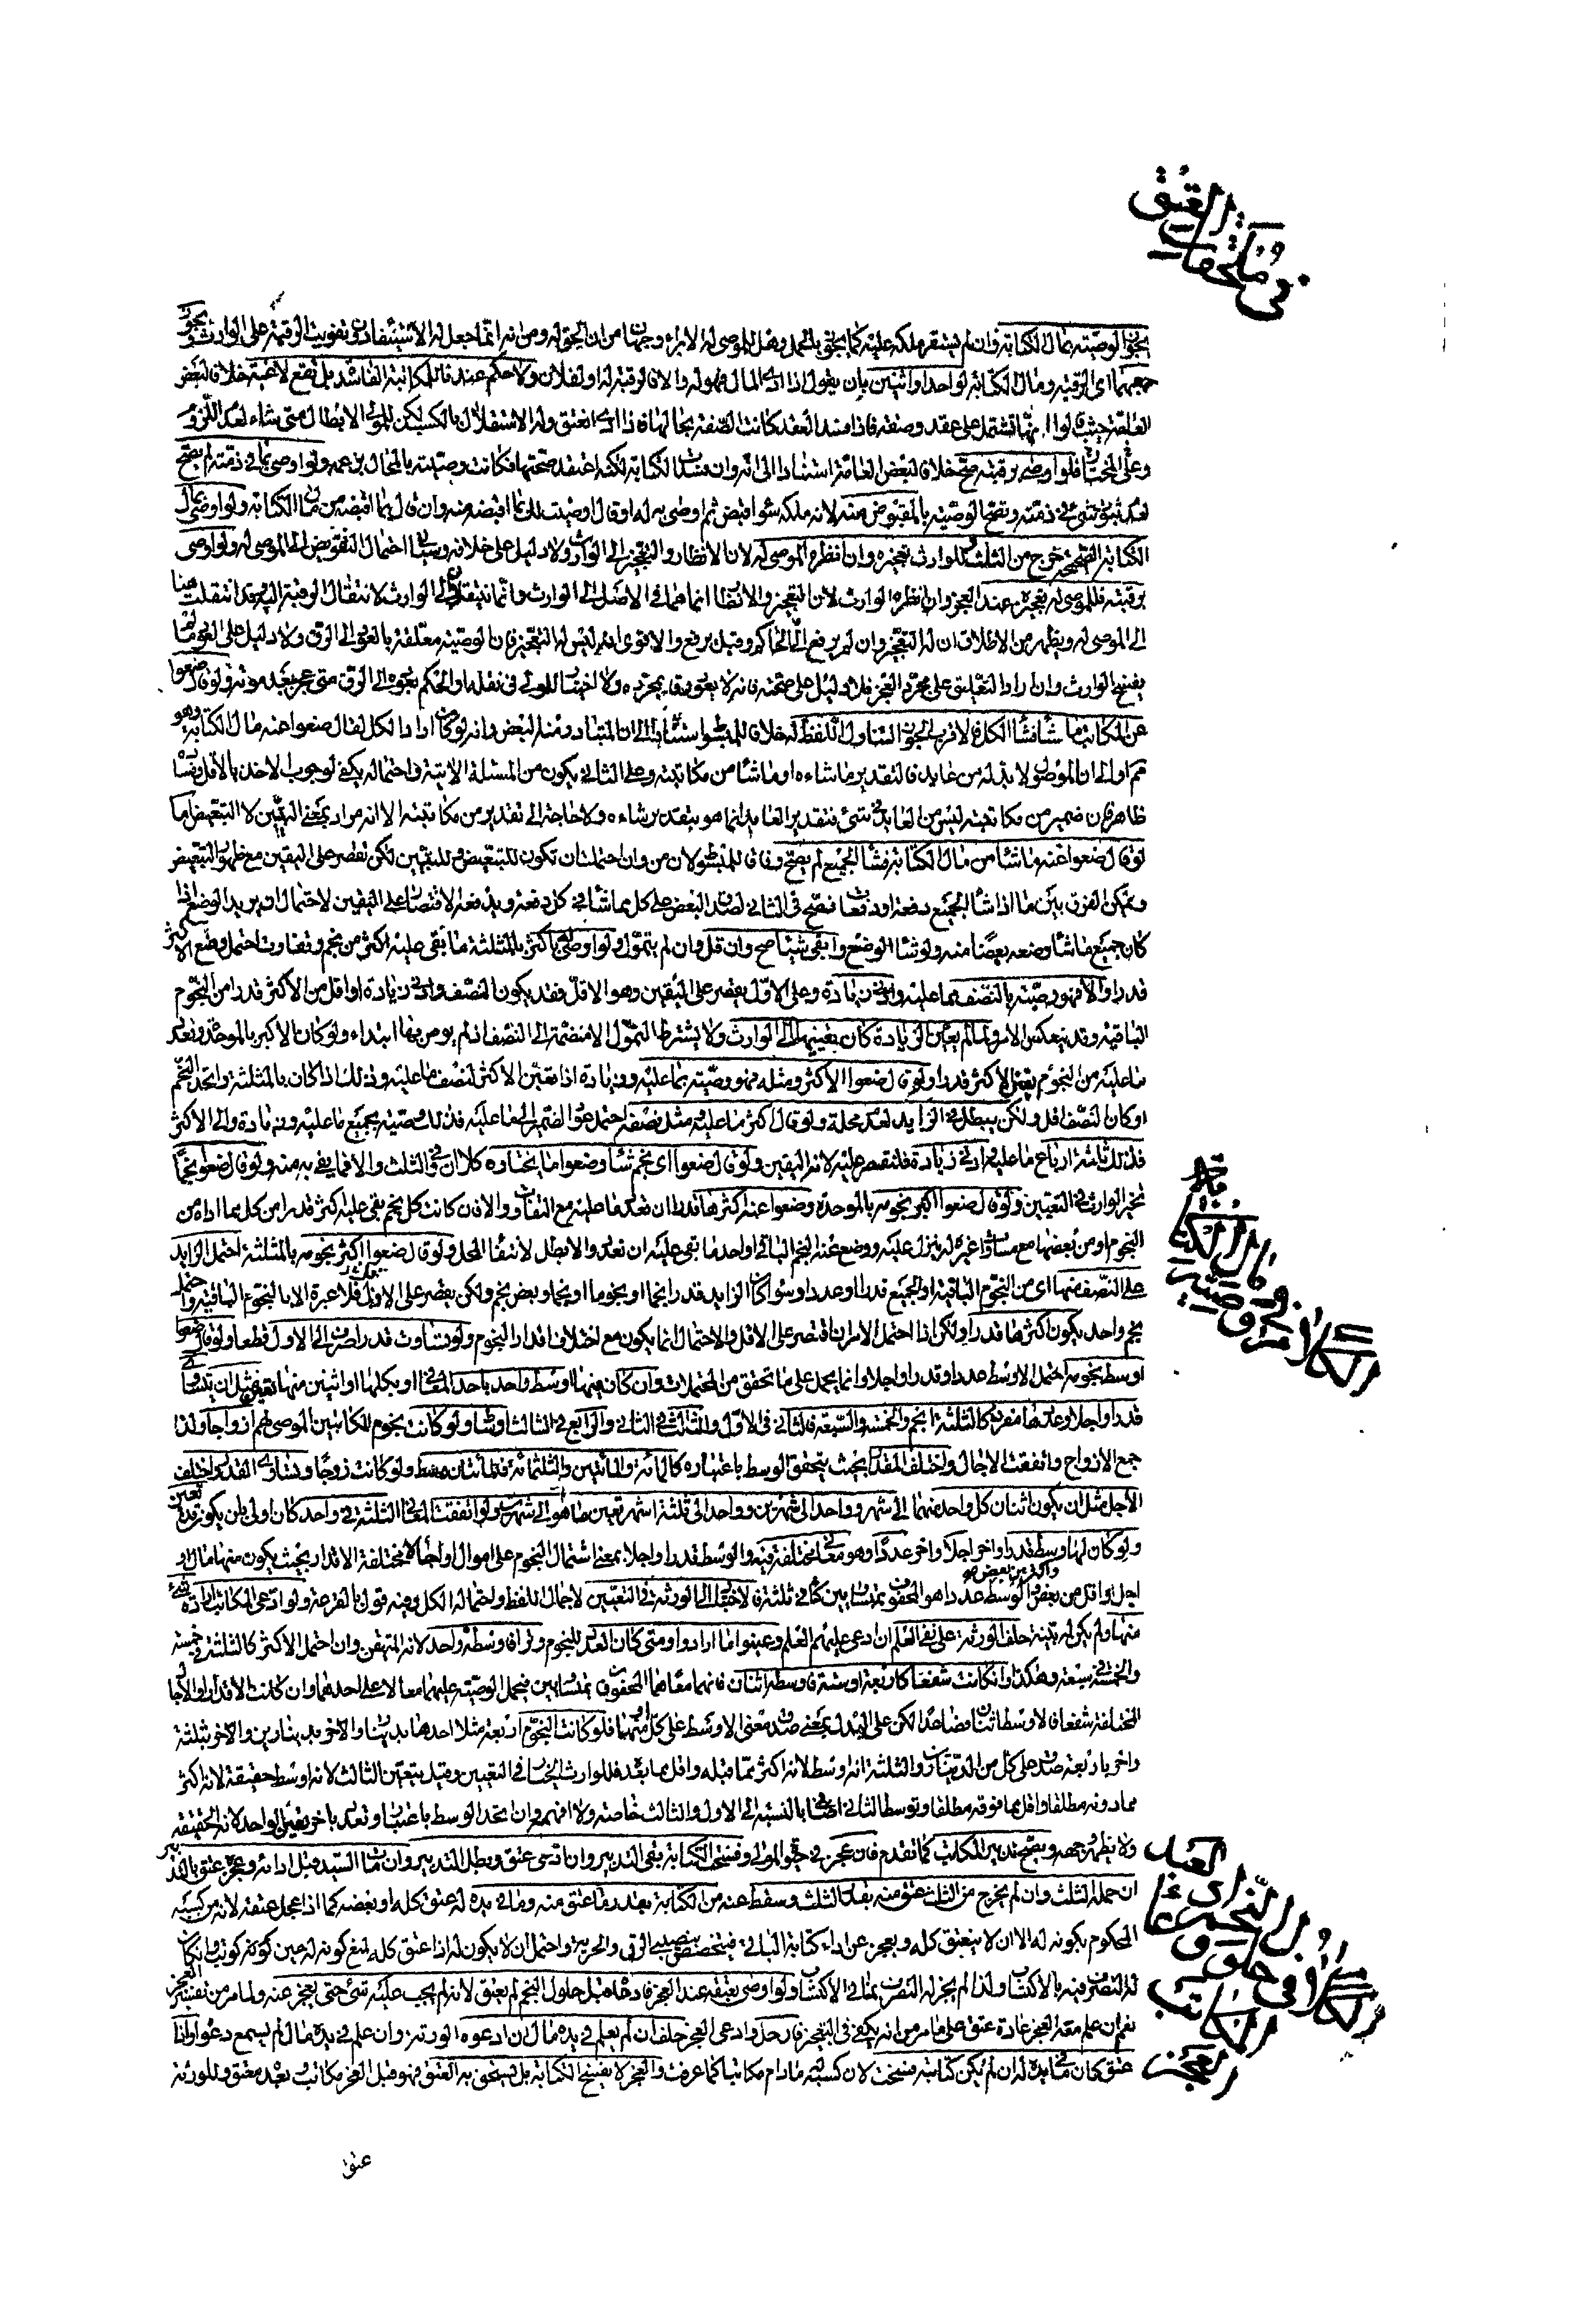 في ملحقات العتق
يجوز الوصية بمال الكتابة وان لم يستقر ملكه عليه كما يجوز بالحمل وهل للموصى له الابراء وجهان من ان الحق له ومن انه انما جعل له الاستيفاء دون تفويت الرقبة على الوارث ويجوز
جمعهما اى الرقبة ومال الكتابة لواحد او اثنين بان يقول اذا ادى المال فهو له والا فالرقبة له او لفلان ولا حكم عندنا للمكاتبة الفاسدة بل تقع لاغية خلافا لبعض
العامة حيث قالوا انها تشتمل على عقد وصفة فاذا فسد العقد كانت الصفة بحالها فاذا ادى انعتق وله الاستقلال بالكسب لكن للمولى الابطال متى شاء لعدم اللزوم
وعلى المختار فلو اوصى برقبته صح خلافا لبعض العامة استنادا الى انه وان فسدت الكتابة لكنه اعتقد صحتها فكانت وصيته بالمحال بزعمه ولو اوصى بما في ذمته لم يصح
لعدم ثبوت شئ في ذمته وتصح الوصية بالمقبوض منه لانه ملكه سواء قبض ثم اوصى به له او قال اوصيت لك بما اقبضه منه وان قال بما اقبضه من مال الكتابة ولو اوصى بمال
الكتابة الصحيحة خرج من الثلث وللوارث تعجيزه وان انظره الموصى له لان الانظار والتعجيز الى الوارث ولا دليل على خلافه احتمال التفويض الى الموصى له ولو اوصى
برقبته فللموصى له تعجيزه عند العجز وان انظره الوارث لان التعجيز والانظار انما هما في الاصل الى الوارث وانما ينتقلان الى الوارث لانتقال الرقبة اليه وقد انتقلت هنا
الى الموصى له ويظهر من الاطلاق ان له التعجيز وان لم يرفع الى الحاكم وقيل يرفع والاقوى انه ليس له التعجيز فان الوصية معلقة بالعود الى الرق ولا دليل على العود ما لم
يفسخ الوارث وان اراد التعليق على مجرد العجز فلا دليل على صحته فانه لا يعود رقا بمجرده ولا اختيار للمولى في نقله او الحكم بعوده الى الرق متى عجز بعد موته ولو قال ضعوا
عن المكاتب ما شاء فشاء الكل فالاقرب الجواز لتناول اللفظ له خلافا للمبسوط استنادا الى ان المتبادر منه البعض وانه لو كان اراد الكل لقال ضعوا عنه مال الكتابة وهو
مم اولى ان الموصول لا بد له من عايد فالتقدير ما شاءه او ما شاء من مكاتبته وعلى الثاني يكون من المسئلة الاتية واحتماله يكفي لوجوب الاخذ بالاقل
ظاهر فان ضمير من مكاتبته ليس من العايد في شئ فتقدير العايد انما هو بتقدير شاءه ولا حاجة الى تقدير من مكاتبته الا انه مراد بمعنى التبيين لا التبعيض اما
لو قال ضعوا عنه ما شاء من مال الكتابة فشاء الجميع لم يصح وفاقا للمبسوط لان من وان احتملت ان تكون للتبعيض وللتبيين لكن نقتصر على اليقين مع ظهور التبعيض
ويمكن الفرق بين ما اذا شاء الجميع دفعة او دفعات فتصح في الثاني لصدق البعض على كل مما شاء في كل دفعة ويدفعه الاقتصار على اليقين لاحتمال ان يريد الوضع اذا
كان جميع ما شاء وضعه بعضا منه ولو شاء الوضع وابقى شيئا صح وان قل وان لم يتمول ولو اوصى باكثر بالمثلثة ما بقى عليه اكثر من نجم وتفاوت احتمل وضع الاكثر
قدرا والا فهو وصية بالنصف مما عليه وادنى زيادة وعلى الاول يقتصر على اليقين وهو الاقل فقد يكون النصف وادنى زيادة او اقل من الاكثر قدرا من النجوم
الباقية وقد ينعكس الامر ولما لم يعين الزيادة كان تعيينها الى الوارث ولا يشترط التمول لا منضمة الى النصف اذ لم يوص بها ابتداء ولو كان الاكبر بالموحدة وتعدد
ما عليه من النجوم تعين الاكثر قدرا ولو قال ضعوا الاكثر ومثله فهو وصية بما عليه وزيادة اذا تعين الاكثر لنصف ما عليه وذلك اذا كان بالمثلثة واتحد النجم
او كان النصف اقل ولكن يبطل في الزايد لعدم محله ولو قال اكثر ما عليه ومثل نصفه احتمل عود الضمير الى ما عليه فذلك وصية بجميع ما عليه وزيادة والى الاكثر
فذلك ثلثة ارباع ما عليه وادنى زيادة فلنقتصر عليه لانه اليقين ولو قال ضعوا اى نجم شاء وضعوا ما يختاره كلا ان وفى الثلث والا فما يفي به منه ولو قال ضعوا نجما
تخير الوارث في التعيين ولو قال ضعوا اكبر نجومه بالموحدة وضعوا عنه اكثرها قدرا ان تعدد ما عليه مع التفاوت والا فان كانت كل نجم بقى عليه اكثر قدرا من كل مما اداه من
النجوم او من بعضها مع مساواة غيره له ينزل عليه ووضع عنه النجم الباقي او احد ما بقى عليه ان تعدد والا بطل لانتفاء المحل ولو قال ضعوا اكثر نجومه بالمثلثة احتمل الزايد
على النصف منها اى من النجوم الباقية او الجميع قدرا او عددا وسواء كان الزايد قدرا نجما او نجوما او نجما وبعض نجم ولكن يقتصر على الاقل فلا عبرة الا بالنجوم الباقية واحتمل
نجم واحد يكون اكثرها قدرا ولكن اذا احتمل الامران اقتصر على الاقل والاحتمال انما يكون مع اختلاف اقدار النجوم ولو تساوت قدرا صرف الى الاول قطعا ولو قال ضعوا
اوسط نجومه احتمل الاوسط عددا وقدرا واجلا وانما يحمل على ما تحقق من المحتملات وان كان فيها اوسط واحد باحد المعاني او بكلها او اثنين منها تعين مثل ان تتساوى
قدرا واجلا وعددها مفرد كالثلثة انجم والخمسة والسبعة فالثاني في الاول والثالث في الثاني والرابع في الثالث اوسط ولو كانت نجوم للمكاتبين الموصى لهم ازواجا ولذا
جمع الازواج واتفقت الاجال واختلف المقدار بحيث يتحقق الوسط باعتباره كالمائة والمائتين والثلثمائة فالمائتان وسط ولو كانت زوجا وتساوى القدر واختلف
الاجل مثل ان يكون اثنان كل واحد منهما الى شهر وواحد الى شهرين وواحد الى ثلثة اشهر تعين ما هو الى شهرين ولو اتفقت المعاني الثلثة في واحد كان اولى بان يكون قد تعين
ولو كان لها وسط قدرا واخر اجلا واخر عددا وهو معاني مختلفة فيه والوسط قدرا واجلا بمعنى اشتمال النجوم على اموال او اجال مختلفة الاقدار بحيث يكون منها مال او
اجل اقل من بعض واكثر من بعض والوسط عددا هو المحفوف بمتساويين كثاني ثلثة فالاختيار الى الورثة في التعيين لاجمال اللفظ واحتماله الكل وفيه قول بالقرعة ولو ادعى المكاتب ارادة شئ
منها ولم يكن له بينة حلف الورثة على نفى العلم ان ادعى عليهم العلم وعينوا ما ارادوا ومتى كان العدد للنجوم وترا فاوسطه واحد لانه المتيقن وان احتمل الاكثر كالثلثة في خمسة
والخمسة في سبعة وهكذا وان كانت شفعا كاربعة او ستة فاوسطه اثنان فانهما معا هما المحفوف بمتساويين فتحمل الوصية عليهما معا لا على احدهما وان كانت الاقدار او الاجال
المختلفة شفعا فالاوسط اثنان فصاعدا لكن على البدل بمعنى صدق معنى الاوسط على كل منهما فلو كانت النجوم اربعة مثلا احدها بدينار والاخر بدينارين والاخر بثلثة
واخر باربعة صدق على كل من الدينارين والثلثة انه اوسط لانه اكثر مما قبله واقل مما بعده فللوارث الخيار في التعيين وقيل يتعين الثالث لانه اوسط حقيقة لانه اكثر
مما دونه مطلقا واقل مما فوقه مطلقا وتوسط الثاني اضافي بالنسبة الى الاول والثالث خاصة ولا افهمه وان اتحد الوسط باعتبار وتعدد باخر تعين الواحد لانه الحقيقة
ولا يظهر وجهه ويصح تدبير المكاتب كما تقدم فان عجز في حيوة المولى وفسخت الكتابة بقى التدبير وان ادى عتق وبطل التدبير وان مات السيد قبل ادائه وعجزه عتق بالتدبير
ان حمله الثلث وان لم يخرج من الثلث عتق منه بقدر الثلث وسقط عنه من الكتابة بقدر ما عتق منه وما في يده له عتق كله او بعضه كما اذا عجل عتقه لانه من كسبه
المحكوم بكونه له الا ان لا ينعتق كله ويعجز عن اداء كتابة الباقي فيتخصص بنصيبي الرق والحرية واحتمل ان لا يكون له اذا عتق كله لمنع كونه له حين كونه مكاتبا وان كان
له التصرف فيه بالاكتساب ولذا لم يجز له التصرف بما ينافي الاكتساب ولو اوصى بعتقه عند العجز فادعاه قبل حلول النجم لم يعتق لانه لم يجب عليه شئ حتى يعجز عنه ولما مر من تفسير العجز
نعم ان علم منه العجز عادة عتق على ما مر من انه يكفي في التعجيز فان حل وادعى العجز حلف ان لم يعلم في يده مال ان ادعوه الورثة وان علم في يده مال لم يسمع دعواه واذا
عتق كان ما في يده له ان لم يكن كتابته فسخت لان كسبه له ما دام مكاتبا كما عرفت والعجز لا يفسخ الكتابة بل يستحق به العتق فهو قبل العجز مكاتب وبعده معتق وللورثة
عتق